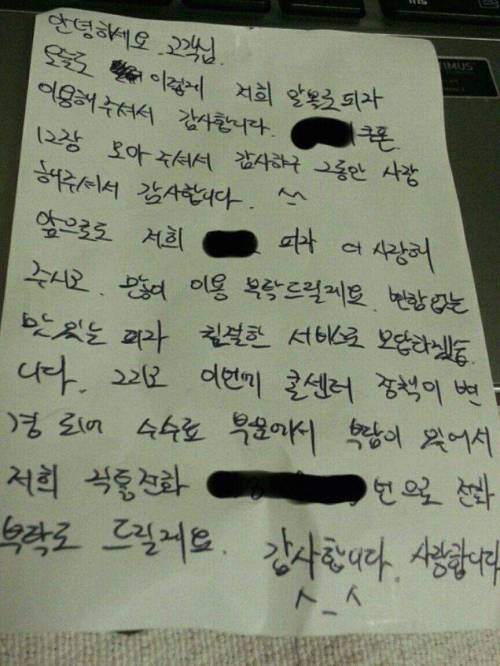 안녕하세요. 고객님.
오늘도 이렇게 저희 알볼로피자
이용해주셔서 감사합니다. 쿠폰
12장 모아 주셔서 감사하구 그동안 사랑
해주셔서 감사합니다. ^^
앞으로도 저희 피자 더 사랑해
주시고. 많이 이용 부탁드릴게요. 변함없는
맛있는 피자 친절한 서비스로 보답하겠습
니다. 그리고 이번에 콜센터 정책이 변
경 되어 수수료 부분에서 부담이 있어서
저희 직통전화 번으로 전화
부탁도 드릴게요. 감사합니다. 사랑합니다
^_^